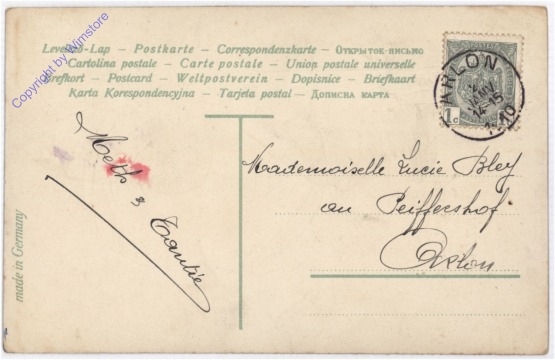 Levelező-Lap – Postkarte – Correspondenzkarte – Открытое письмо
Cartolina postale – Carte postale – Union postale universelle
Brefkort – Postcard – Weltpostverein – Dopisnice – Briefkaart
Karta Korespondencyjna – Tarjeta postal – Дописна карта
Copyright by Wimstore
ARLON
15
1910
1c
Mademoiselle Lucie Bley
au Peiffershof
Arlon
&
Tantie
made in Germany